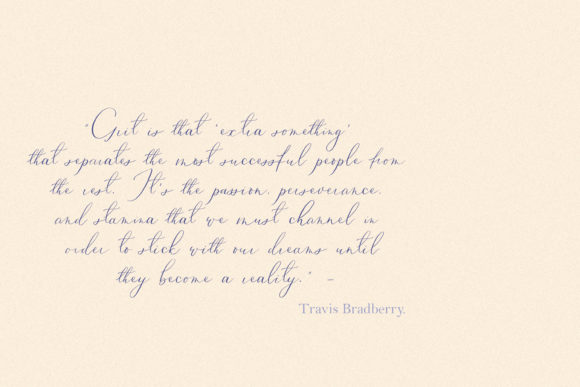 "Grit is that 'extra something'
that separates the most successful people from
the rest. It's the passion, perseverance,
and stamina that we must channel in
order to stick with our dreams until
they become a reality." -
Travis Bradberry.